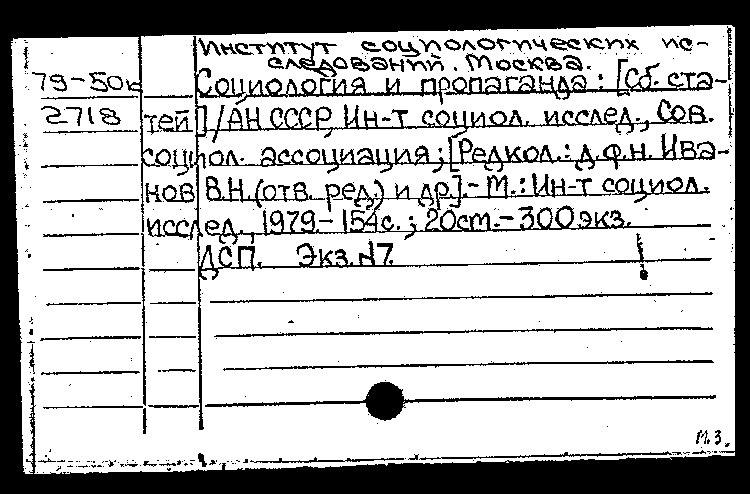 Институт социологических ис-
следований. Москва.
79-50к Социология и пропаганда: [Сб. ста-
2718 тей]/АН СССР, Ин-т социол. исслед., Сов.
социол. ассоциация; [Редкол.: д.ф.н. Ива-
нов В.Н. (отв. ред.) и др.].- М.: Ин-т социол.
исслед., 1979.- 154с.; 20см.- 300экз.
ДСП. Экз.№7. !
М.З.